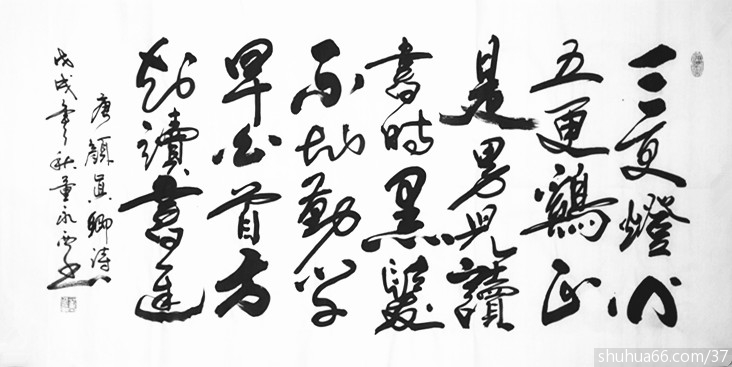 三更燈火
五更鷄正
是男兒讀
書時黑髮
不知勤学
早白首方
悔讀書遲
唐顏眞卿詩
戊戌年秋董永
shuhua66.com/37